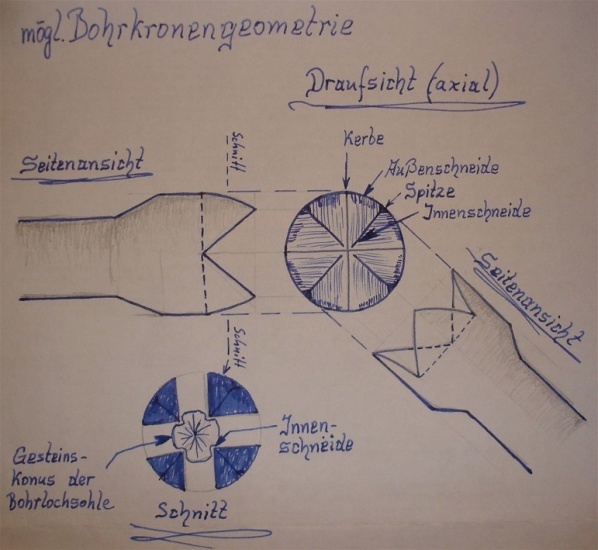 mögl. Bohrkronengeometrie
Draufsicht (axial)
Seitenansicht
Schnitt
Kerbe
Außenschneide
Spitze
Innenschneide
Seitenansicht
Schnitt
Gesteins-
konus der
Bohrlochsohle
Innen-
schneide
Schnitt